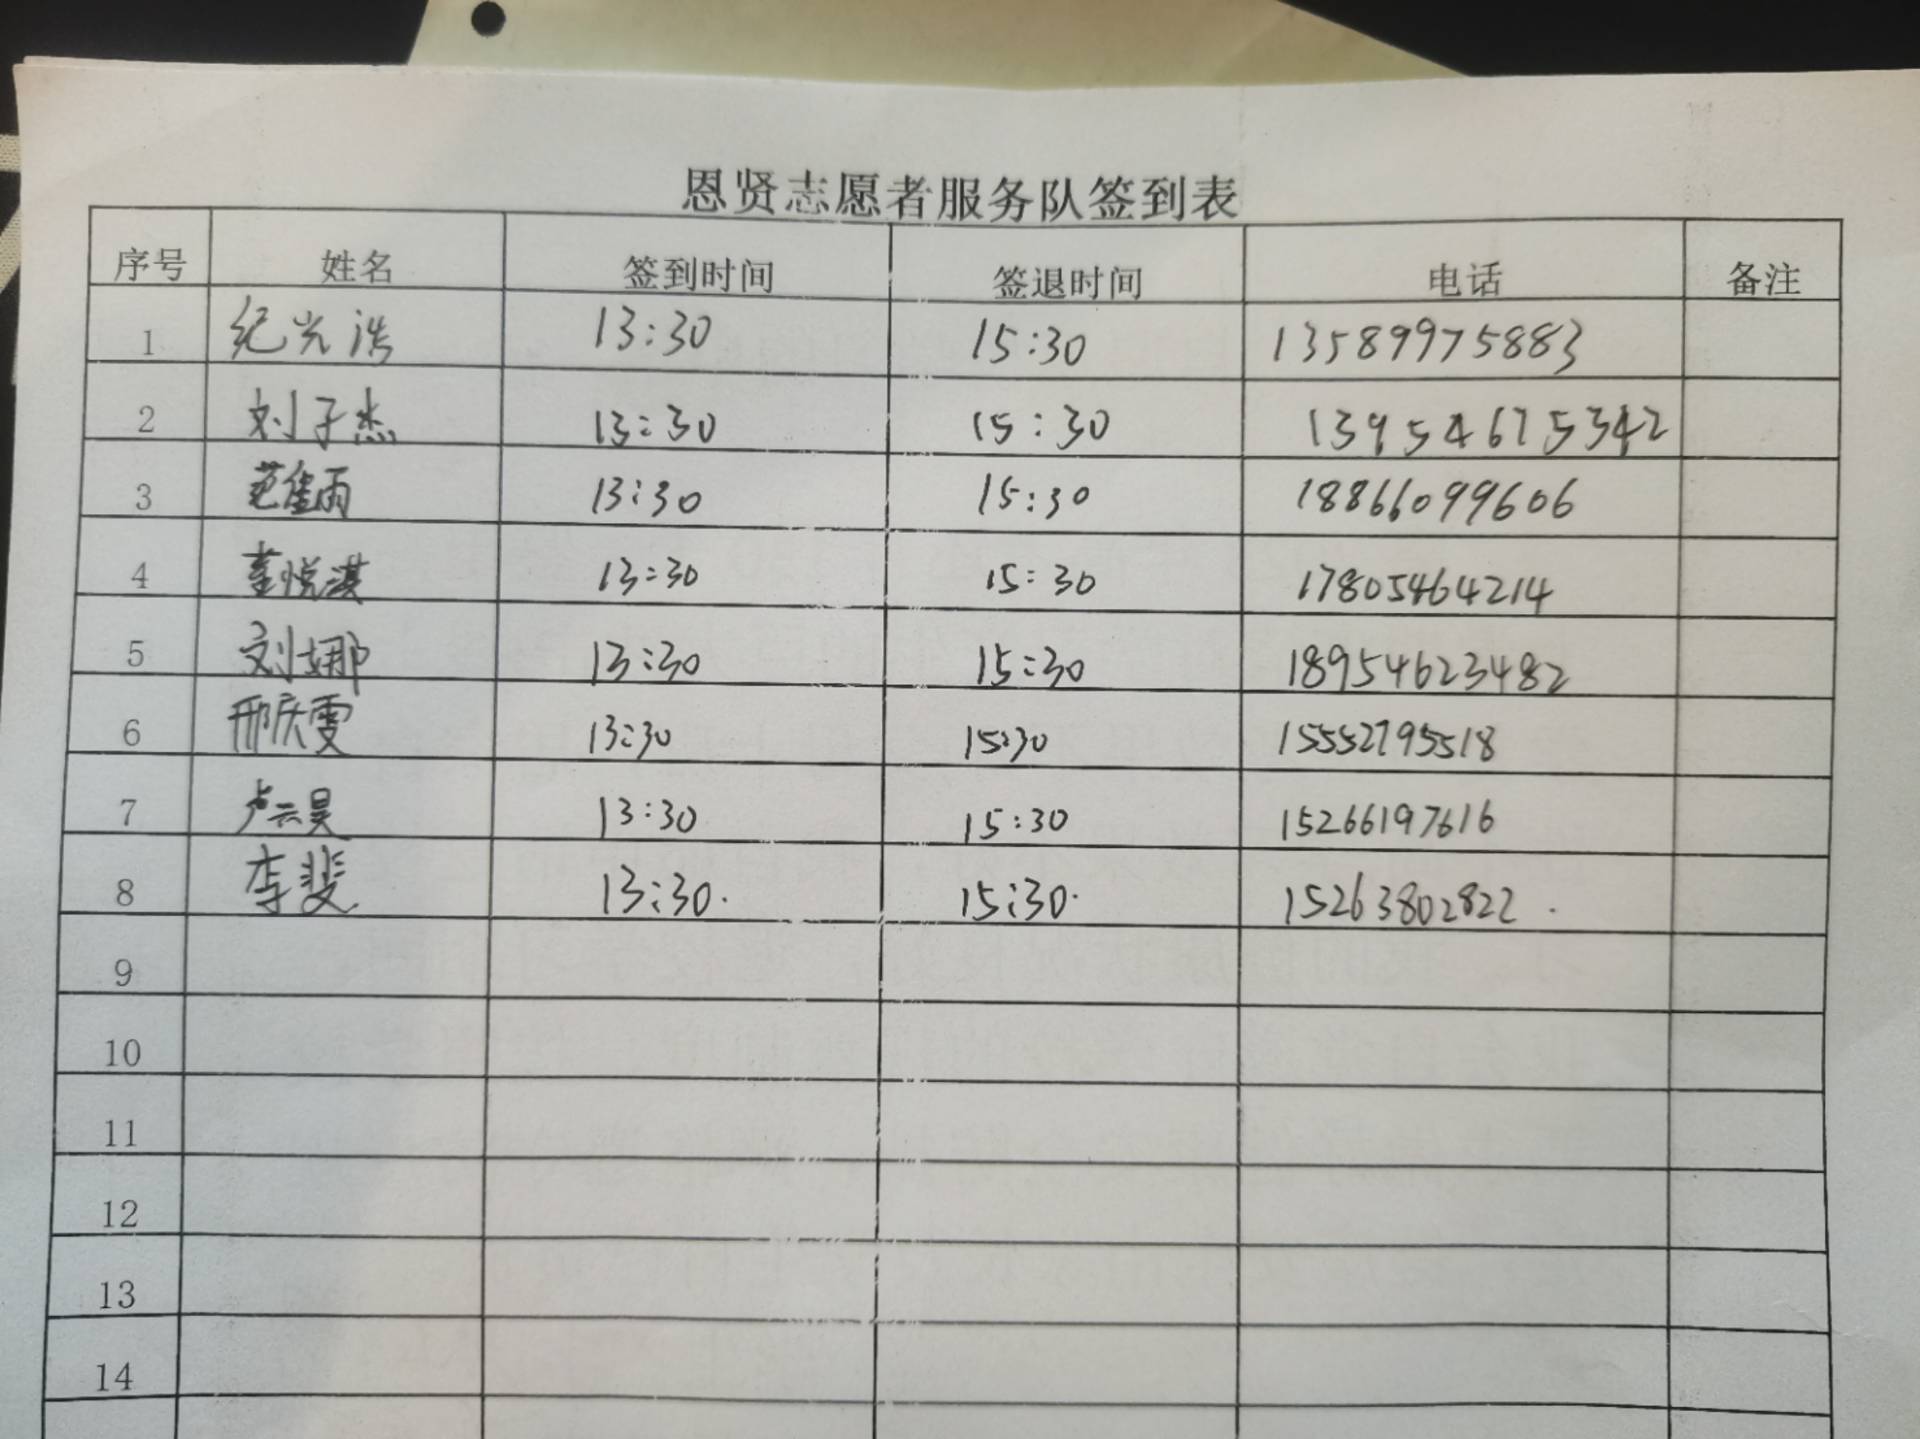 恩贤志愿者服务队签到表
序号 姓名 签到时间 签退时间 电话 备注
1 纪光浩 13:30 15:30 13589975883
2 刘子杰 13:30 15:30 13954675342
3 范佳雨 13:30 15:30 18866099606
4 董悦淇 13:30 15:30 17805464214
5 刘娜 13:30 15:30 18954623482
6 邢庆雯 13:30 15:30 15552795518
7 卢云昊 13:30 15:30 15266197616
8 李斐 13:30. 15:30. 15263802822.
9
10
11
12
13
14